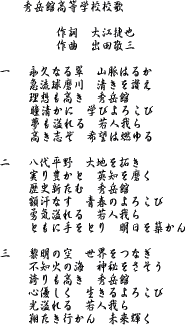 秀岳館高等学校校歌
作詞 大江捷也
作曲 出田敬三
一 永久なる翠 山脈はるか
急流球磨川 清きを讃え
理想も高き 秀岳館
瞳清かに 学びよろこび
夢も溢れる 若人我ら
高き志ぞ 希望は燃ゆる
二 八代平野 大地を拓き
実り豊かと 英知を磨く
歴史新たむ 秀岳館
額汗なす 青春のよろこび
勇気溢れる 若人我ら
ともに手をとり 明日を築かん
三 黎明の空 世界をつなぎ
不知火の海 神秘をさそう
誇りも高き 秀岳館
心優しく 生きるよろこび
光溢れる 若人我ら
翔たき行かん 未来輝く